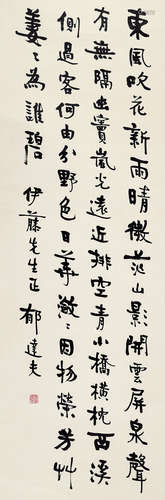 東風吹花新雨晴微茫山影開雲屏泉聲
有無隔幽竇嵐光遠近排空青小橋橫枕西溪
側過客何由分野色日華〻因物榮芳艸
萋〻為誰碧 伊藤先生正 郁達夫